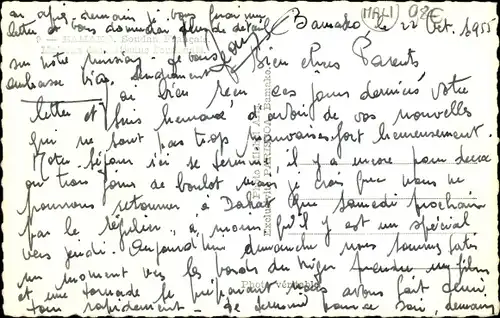 Bamako, le 22 Oct. 1955
(MALI) 02E
Bien chers Parents
J'ai bien reçu ces jours derniers votre
lettre et suis heureux d'avoir de vos nouvelles
qui ne sont pas trop mauvaises fort heureusement.
Notre séjour ici se termine, il y a encore pour deux
ou trois jours de boulot mais je crois que nous ne
pourrons retourner à Dakar que samedi prochain
par le régulier, à moins qu'il y est un spécial
vers jeudi. Aujourd'hui dimanche nous sommes partis
un moment vers les bords du Niger prendre un film
et une tornade se préparant nous avons fait demi
tour rapidement. Je demande pour ce soir, demain
ou après demain je vous ferai une
lettre et vous donnerai plus de détail
sur notre mission. Je vous
embrasse bien longuement
Photo véritable